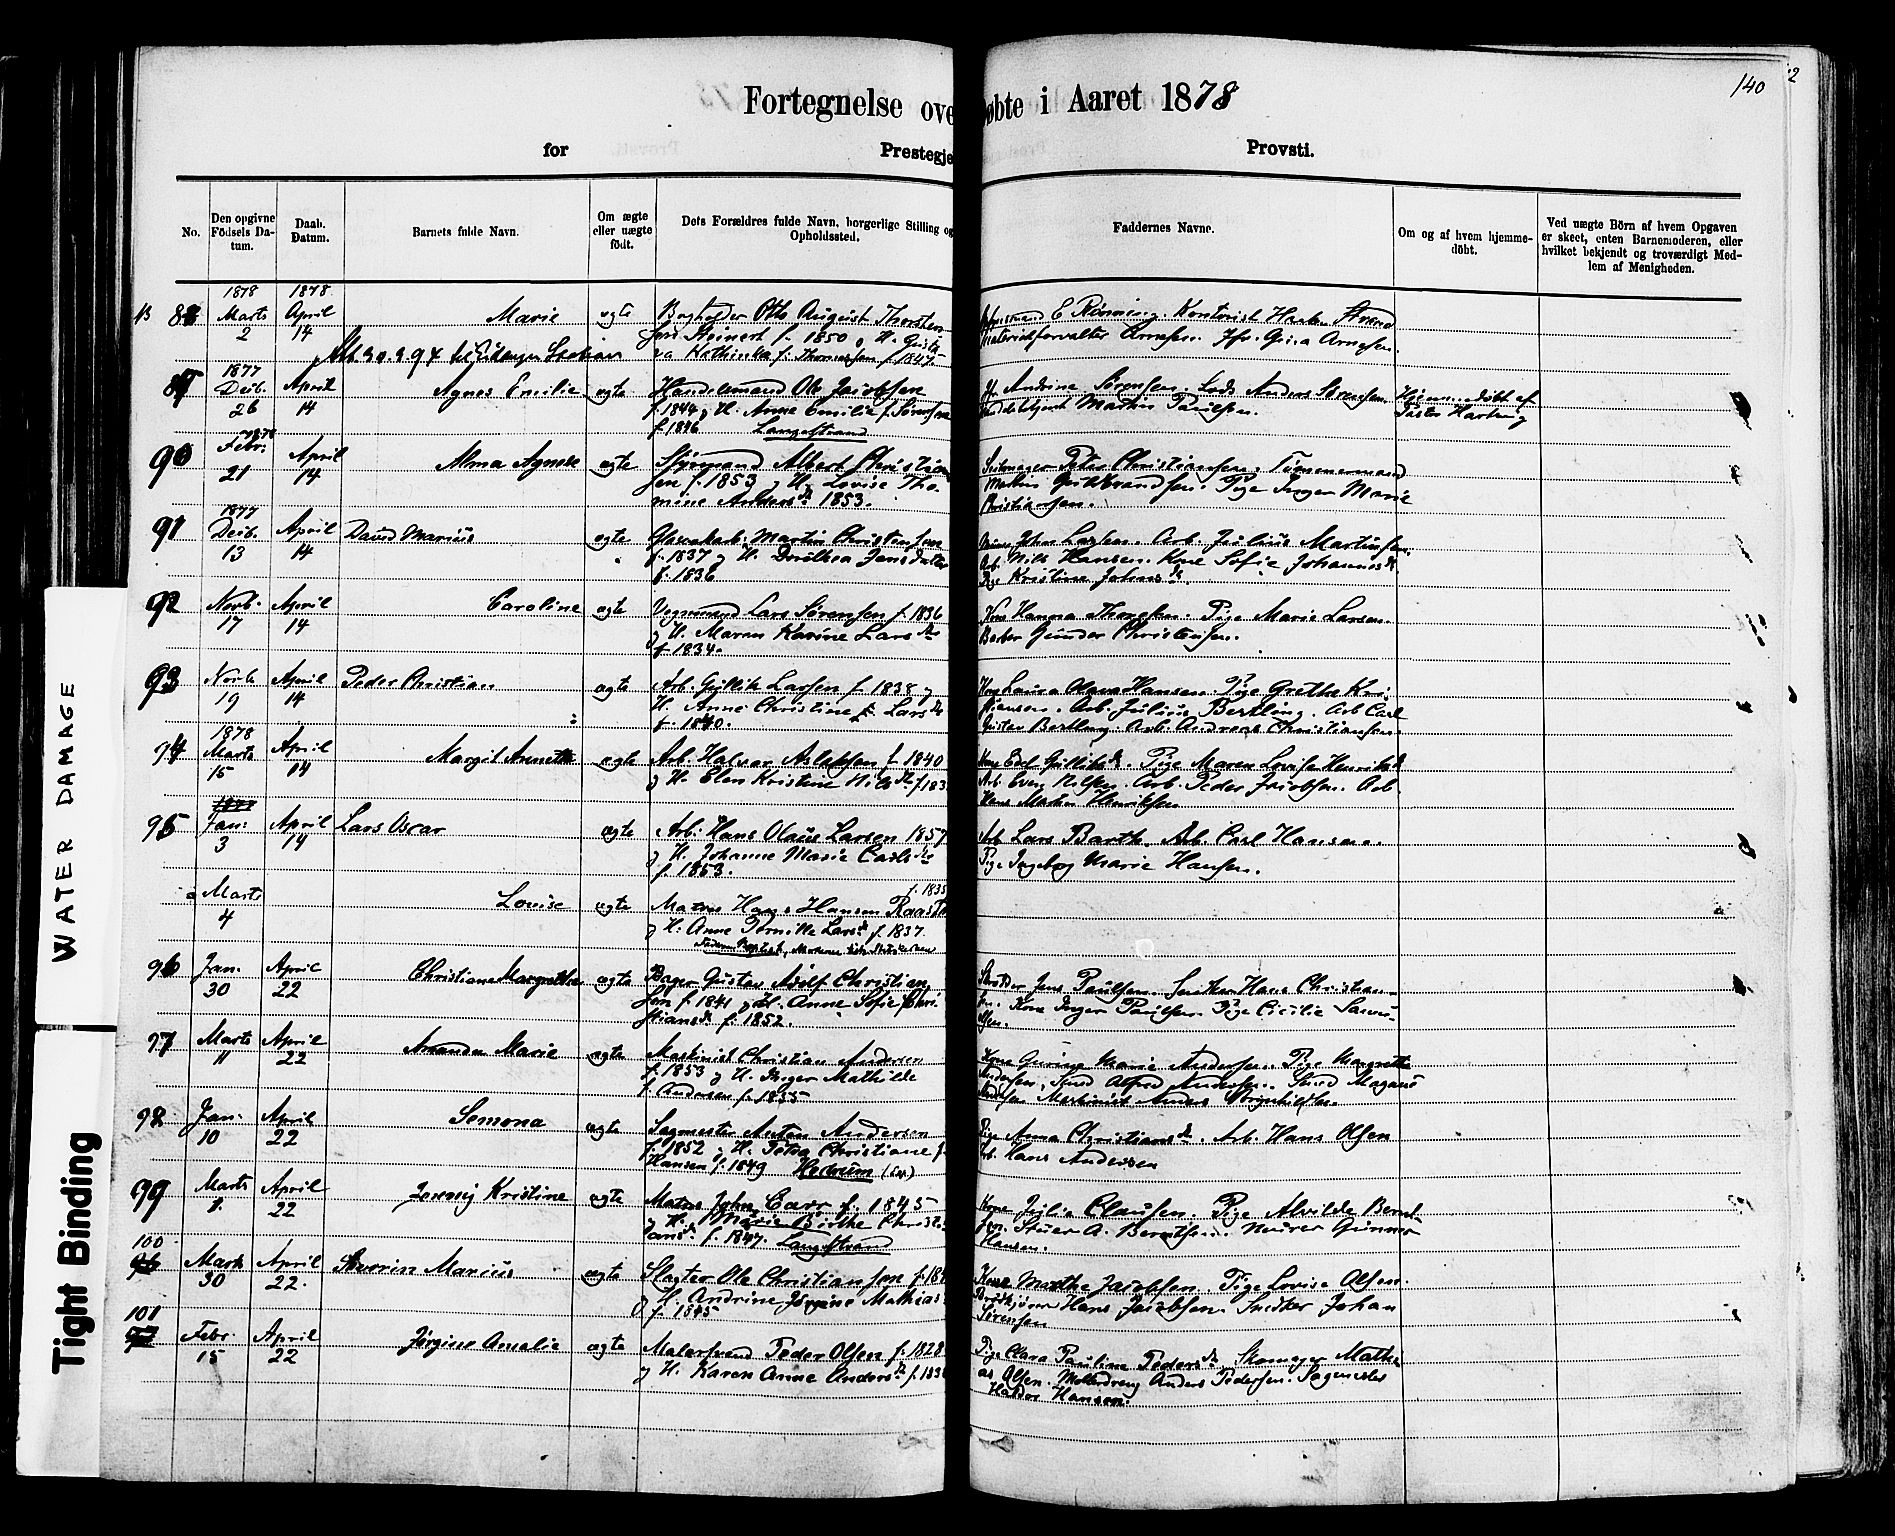 140
2
Fortegnelse ove
øbte i Aaret 1878
for
Prestegje
Provsti.
No.
Den opgivne Födsels Da-tum.
Daab. Datum.
Barnets fulde Navn.
Om ægte eller uægte født.
Dets Forældres fulde Navn, borgerlige Stilling og Opholdssted.
Faddernes Navne.
Om og af hvem hjemme-döbt.
Ved uægte Börn af hvem Opgaven er skeet, enten Barnemoderen, eller hvilket bekjendt og troværdigt Med-lem af Menigheden.
1878 1878
Marts 2 April 14 Marie ægte Bogholder Otto August Thorsten-
sen Steinert f. 1850 g H.
Kathinka f. Thomassen f. 1847
E Rönning. Kontorist
Materialforvalter Arnesen. Gina Arnesen.
1877
Decb. 26 April 14 Agnes Emilie ægte Handelsmand Ole Jacobsen
f. 1844 g H. Anne Emilie f. Sörensen
f. 1846 Langestrand
Andrine Sörensen. Lods Anders Sörensen.
Martin Paulsen.
Hjemmedöbt af
1878
90 Febr. 21 April 14 Alma Agnete ægte Styrmand Albert Christian
sen f. 1853 g H. Lovise Tho-
mine Andersd. 1853.
Seilmager Peter Christiansen. Tömmermand
Pige Inger Marie
Christiansen.
1877
91 Decb. 13 April 14 David Marius ægte Martin Christensen
f. 1837 g H. Jensdatter
f. 1836
Arb. Julius Martinsen.
Arb. Nils Hansen. Kone Sofie Johannesd.
Pige Kristine Johnsd.
92 Novb. 17 April 14 Caroline ægte Vognmand Lars Sörensen f. 1836
g H. Maren Karine Larsd.
f. 1834.
Kone Hanna Pige Marie Larsen.
Gunder Christensen.
93 Novb 19 April 14 Peder Christian ægte Arb. Gullik Larsen f. 1838 g
H. Anne Christine Larsd.
f. 1840.
Laura Hansen. Pige Grethe Kri
stiansen. Arb. Julius Bertling. Arb Carl
Gustav Bertling. Arb. Andreas Christiansen.
1878
94 Marts 15 April 14 Margit Annette ægte Arb. Halvor Aslaksen f. 1840
g H. Elen Kristine Nilsd. f. 183
Pige Maren Lovise Henriksd.
Arb. Even Nilsen. Arb. Peder Jacobsen. Arb.
Hans Martin Henriksen
1877
95 Jan. 3 April 14 Lars Oscar ægte Arb. Hans Olaus Larsen 1857
g H. Johanne Marie Carlsd.
f. 1853.
Arb Lars Barth. Arb. Carl Hansen.
Pige Ingeborg Marie Hansen.
a Marts 4 Louise ægte Matros Hans Hansen f. 1835
g H. Anne Larsd. f. 1837.
96 Jan. 30 April 22 Christiane Margrethe ægte Bager Gustav Adolf Christian
sen f. 1841 g H. Anne Sofie Chri
stiansd. f. 1852.
Jens Paulsen. Snedker Hans Christian
sen. Kone Inger Paulsen. Pige Cicilie
97 Marts 11 April 22 Amanda Marie ægte Maskinist Christian Andersen
f. 1853 g H. Inger Mathilde
f. Andersen f. 1855
Kone Marie Andersen. Pige Margrethe
Andersen. Smed Alfred Andersen. Smed Magnus
Maskinist Anders
98 Jan. 10 April 22 Semona ægte Sagmester Anton Andersen
f. 1852 g H. Petra Christiane f.
Hansen f. 1849 Hedrum
Pige Anna Christiansd. Arb. Hans Olsen
Arb. Hans Andersen
99 Marts 8. April 22 Kristine ægte Matros John Carr f. 1845
g H. Marie Birthe Christi
ansd. f. 1847. Langestrand
Kone Julie Clausen. Pige Alvilde Bernt
sen. Stuer A. Berntsen. Murer Gunner
Hansen.
100
96 Marts 30 April 22. Severin Marius ægte Slagter Ole Christiansen f. 18
g H. Andrine Mathias
f. 1845
Kone Marthe Jacobsen. Pige Lovise Olsen.
Hans Jacobsen. Snedker Johan
Sörensen
101
97 Febr. 15 April 22 Jörgine Amalie ægte Malersvend Peder Olsen f. 1828
g H. Karen Anne Andersd. f. 183
Pige Clara Pauline Pedersd. Skomager Mathi
as Olsen. Anders Pedersen. Sagmester
Halvor Hansen.
WATER DAMAGE
Tight Binding